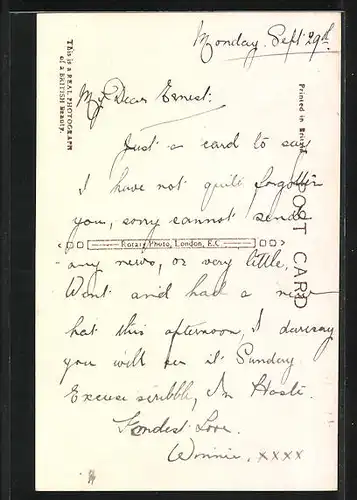 Monday. Sept 29th
This is a REAL PHOTOGRAPH
of a BRITISH Beauty.
Printed in
POST CARD
My Dear Ernest:
Just a card to say
I have not quite forgotten
you, sorry cannot send
Rotary Photo, London, E.C.
any news, or very little,
Went and had a new
hat this afternoon, I daresay
you will see it Sunday.
Excuse scribble, In Haste.
Fondest Love.
Winnie. xxxx